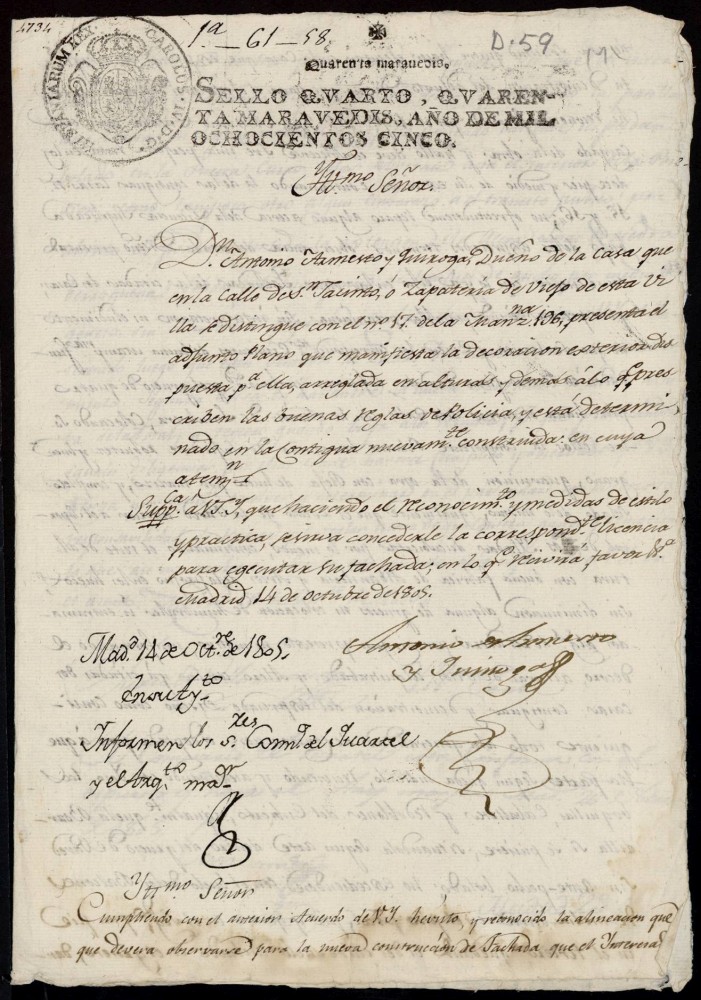 4734
CAROLUS IV D. G. HISPANIARUM REX
1.ª - 61 - 58
D. 59
Quarenta maravedis.
SELLO QVARTO, QVAREN-
TA MARAVEDIS, AÑO DE MIL
OCHOCIENTOS CINCO.
Yll.mo Señor.
D.n Antonio Armesto y Quiroga, Dueño de la Casa que
en la Calle de S.n Jacinto, o Zapatería de Viejo de esta Vi
lla se distingue con el nº 17. de la Manz.na 196, presenta el
adjunto Plano que manifiesta la decoracion exterior dis
puesta p.ª ella, arreglada en alturas y demas á lo q.e pres
criben las buenas reglas de Policia, y está determi,
nado en la Contigua nuevam.te construida: en cuya
atem.n
Supp.ca a V.S.Y, que haciendo el reconocim.to y medidas de estilo
y practica, se sirva concederle la correspond.te licencia
para egecutar su fachada; en lo q.e recivirá favor &.ª
Madrid, 14 de octubre de 1805.
Antonio Armesto
y Quiroga
Mad.d 14 de Oct.re de 1805.
En su Ay.to
Informen los S.res Com.o del Quartel
y el Arq.to may.r
Yll.mo Señor
Cumpliendo con el anterior Acuerdo de V.Y. he visto, y reconocido la alineacion que
que devera observarse para la nueva construcción de Fachada que el Interesa